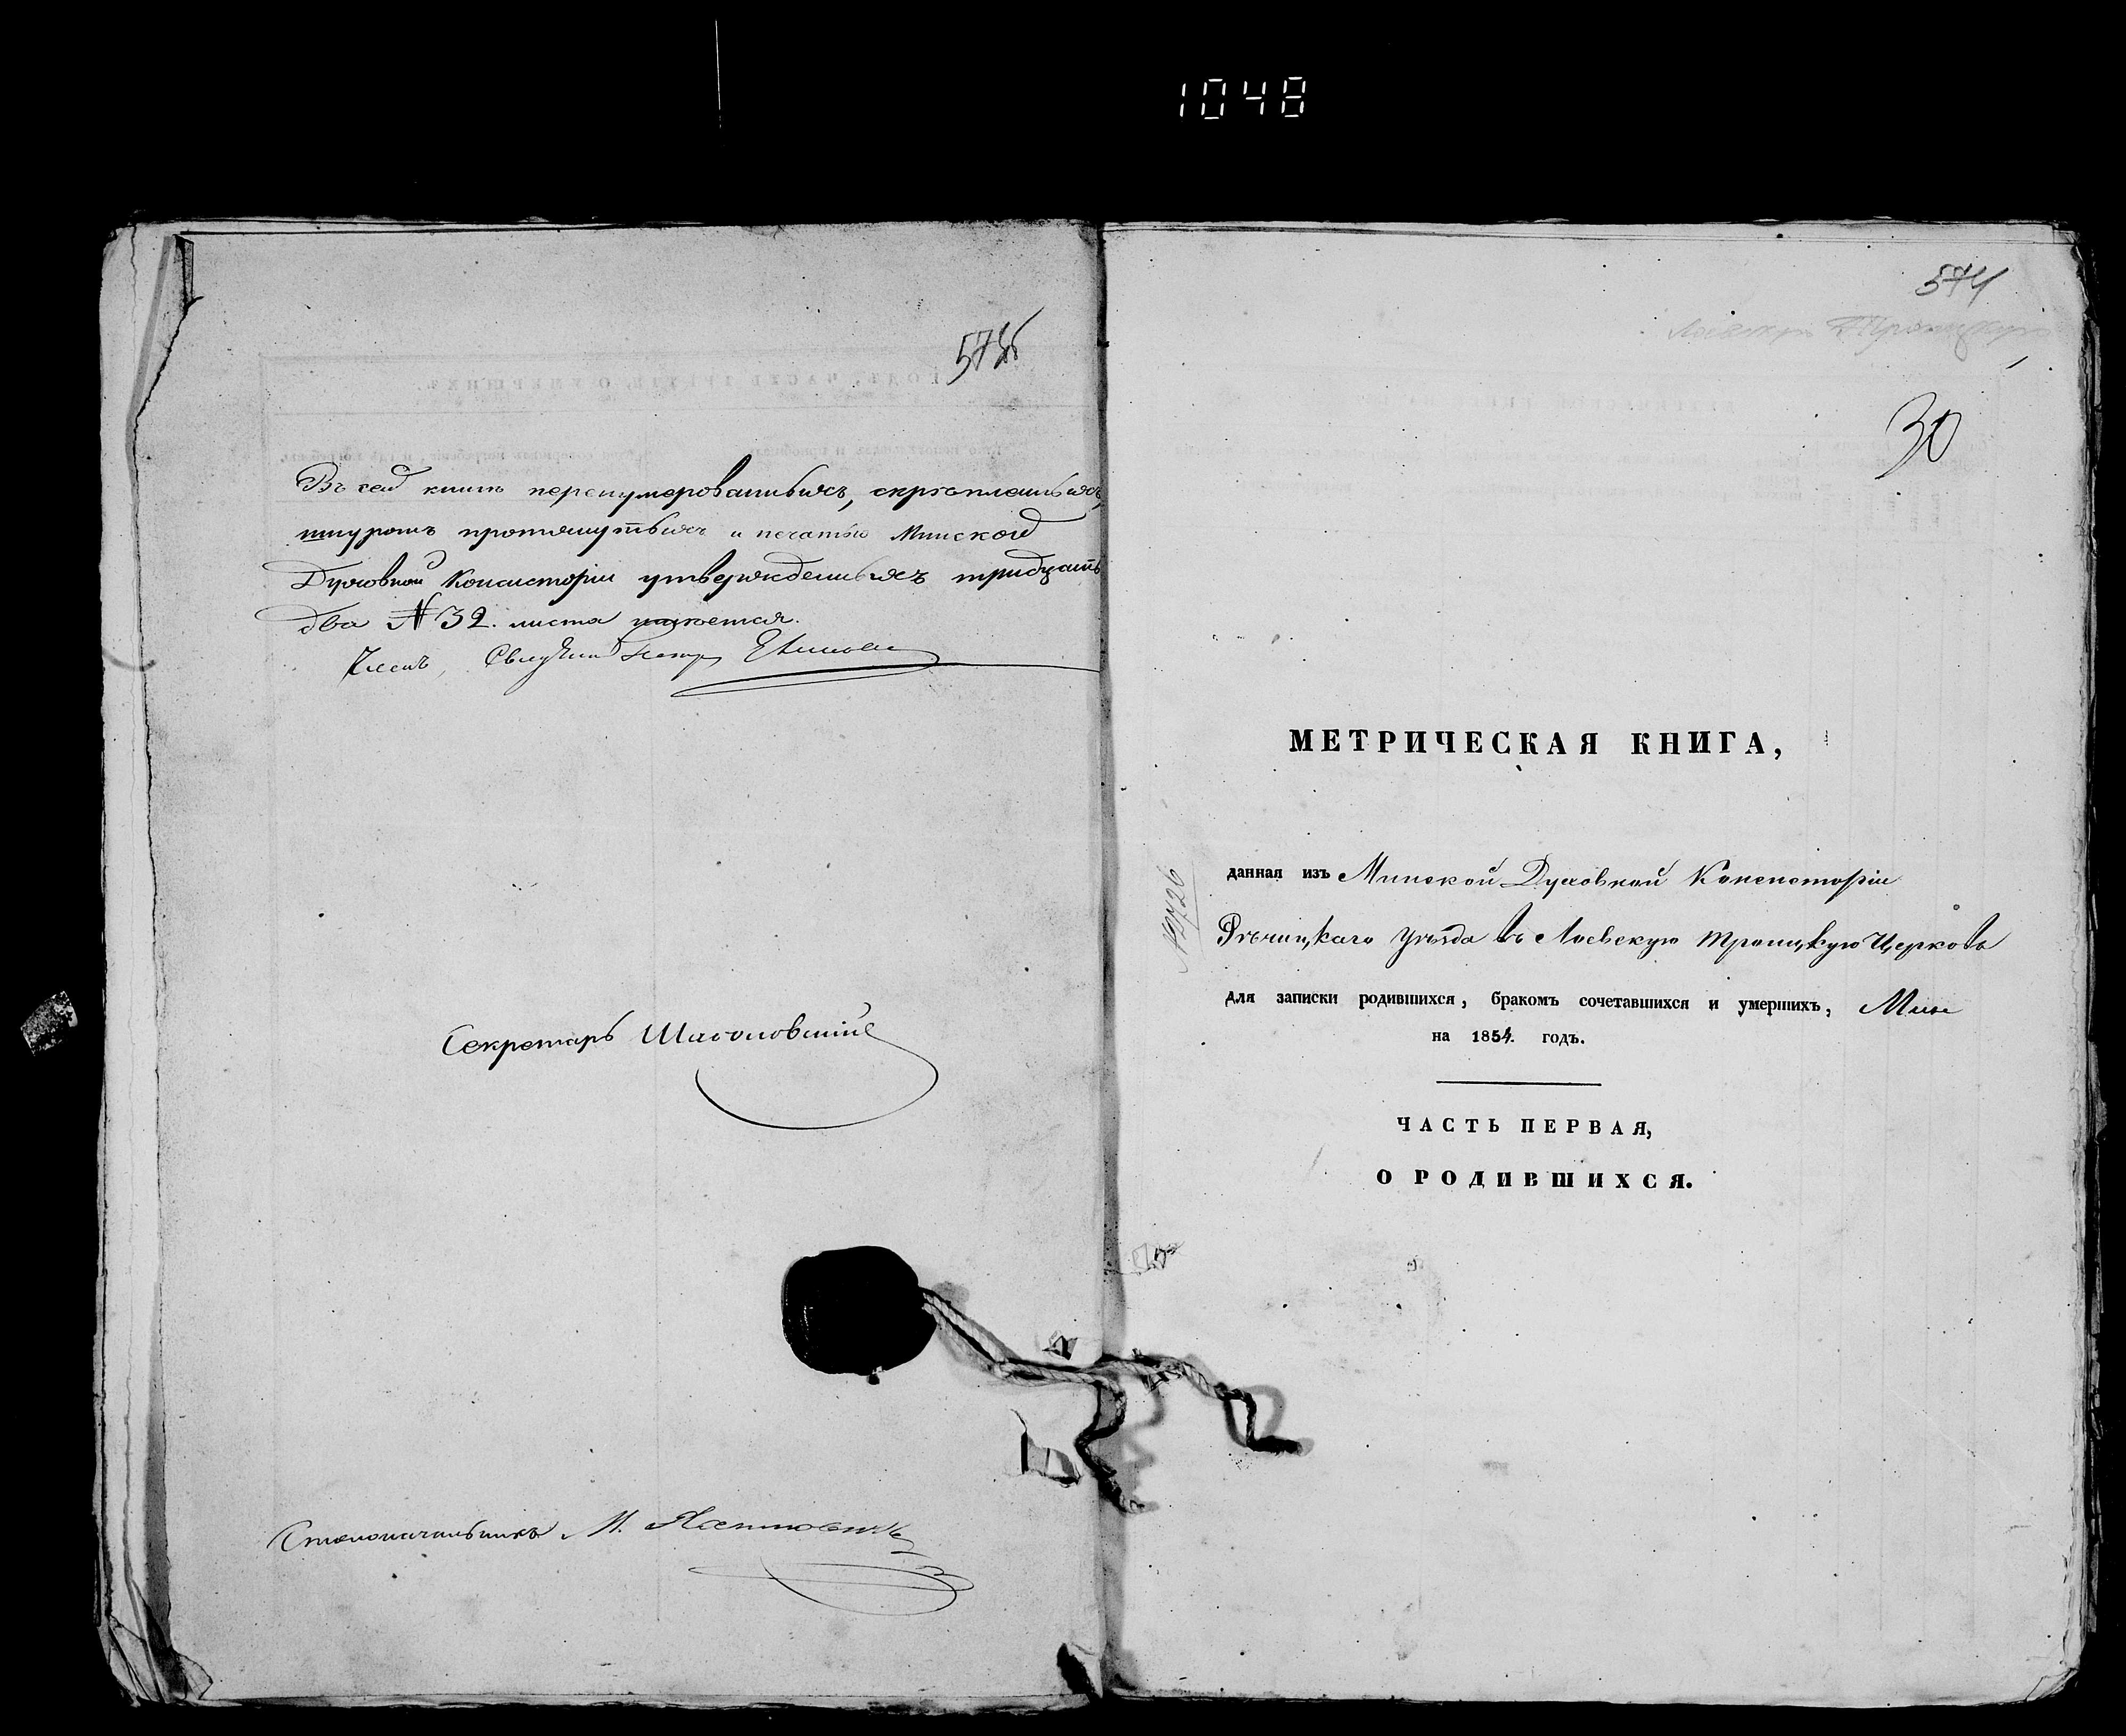 1048
Въ сей книгѣ перенумерованныхъ, скрѣпленныхъ,
шнуромъ протянутыхъ и печатью Минской
Духовной Консисторіи утвержденныхъ тридцать
два № 32. листа имѣется.
Членъ, Священникъ
Секретарь
Столоначальникъ М.
574
30
МЕТРИЧЕСКАЯ КНИГА,
данная изъ Минской Духовной Консисторіи
Рѣчицкаго Уѣзда въ Лоевскую Троицкую Церковь
для записки родившихся, бракомъ сочетавшихся и умершихъ,
на 1854. годъ.
ЧАСТЬ ПЕРВАЯ,
О РОДИВШИХСЯ.
№2726